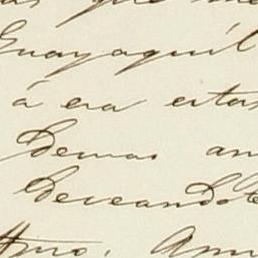 que
Guayaquil
á era estas
Demas an
Deseandote
Amo. Am